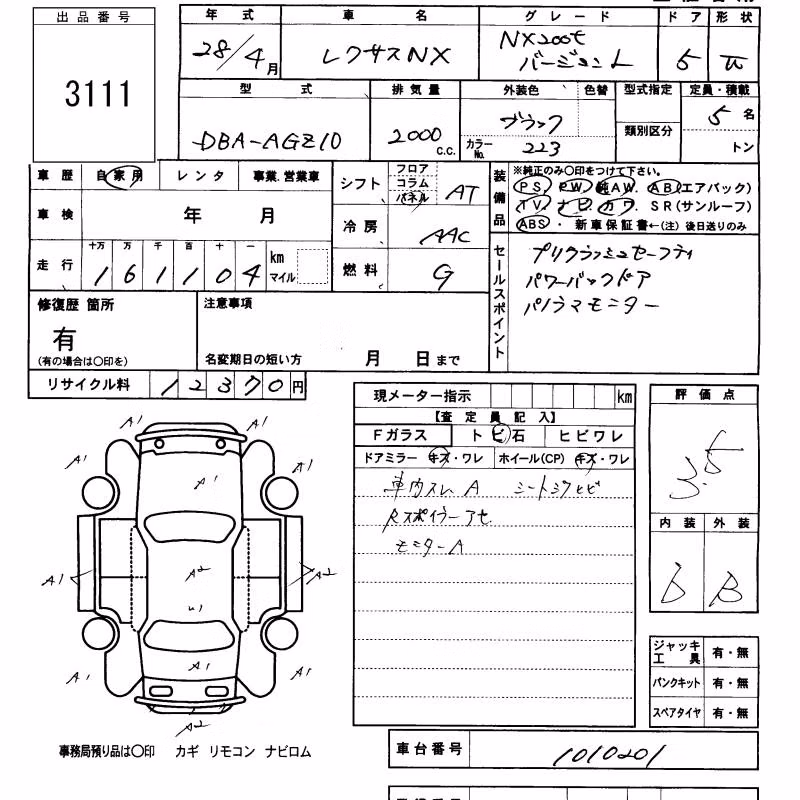 出品番号
3111
年式 車名 グレード ドア 形状
28/4月 レクサスNX NX200t バージョンL 5
型式 排気量 外装色 色替 型式指定 定員・積載
DBA-AGZ10 2000 C.C. ブラック カラーNo. 223 類別区分 5名 トン
車歴 自家用 レンタ 事業.営業車
シフト フロア コラム パネル AT
装備品 ※純正のみ○印をつけて下さい。
PS PW 純AW. AB(エアバック)
TV ナビ カワ. SR(サンルーフ)
ABS・新車保証書←(注)後日送りのみ
車検 年 月
冷房 AAC
走行 十万 万 千 百 十 一
161104 km マイル
燃料 G
セールスポイント
プリクラッシュセーフティ
パワーバックドア
パノラマモニター
修復歴 箇所
有
(有の場合は○印を)
注意事項
名変期日の短い方 月 日まで
リサイクル料 12370円
現メーター指示 km
【査定員記入】
Fガラス トビ石 ヒビワレ
ドアミラー キズ・ワレ ホイール(CP) キズ・ワレ
車内スレA シートシワヒビ
Rスポイラーアセ
モニターA
評価点
3.5
内装 外装
b B
A1 A1
A1 A1 A1
A1 A2 A2
U1
A1 A1 A1
A2
ジャッキ工具 有・無
パンクキット 有・無
スペアタイヤ 有・無
事務局預り品は○印 カギ リモコン ナビロム
車台番号 1010201